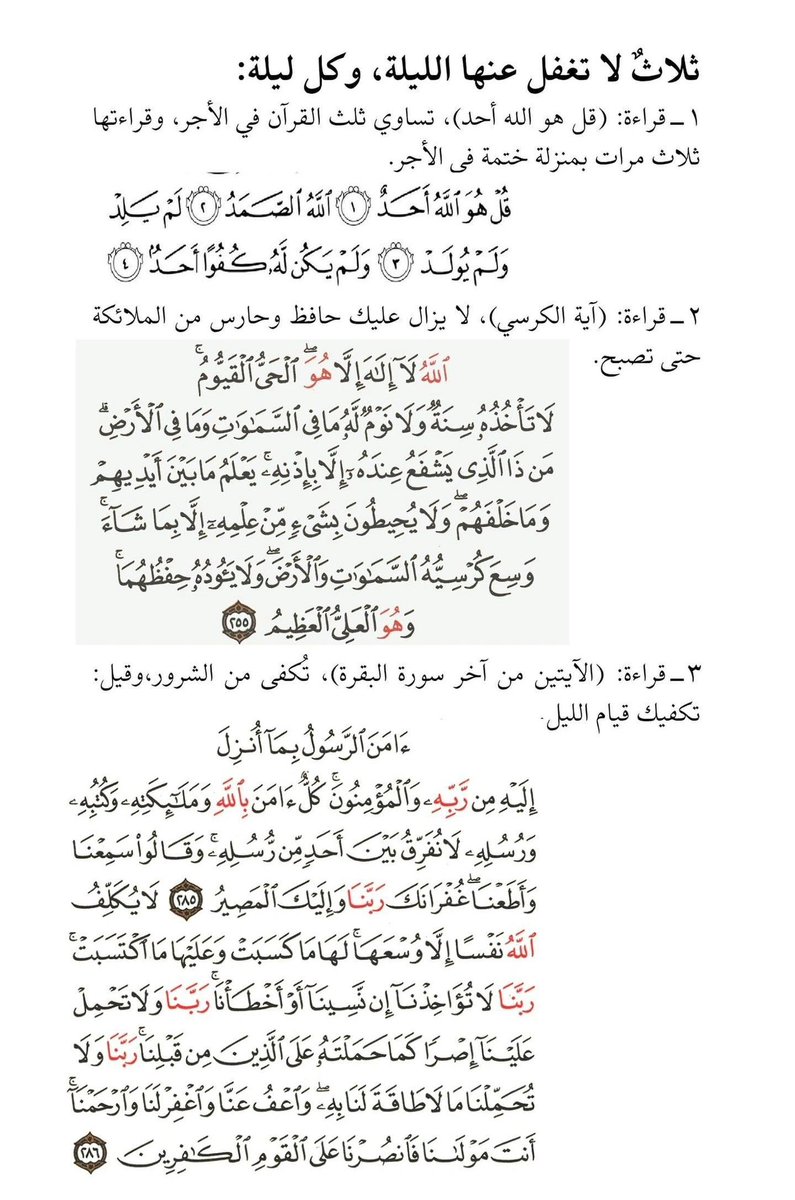 ثلاثٌ لا تغفل عنها الليلة، وكل ليلة:
١ ـ قراءة: (قل هو الله أحد)، تساوي ثلث القرآن في الأجر، وقراءتها
ثلاث مرات بمنزلة ختمة في الأجر.
قُلۡ هُوَ ٱللَّهُ أَحَدٌ ١ ٱللَّهُ ٱلصَّمَدُ ٢ لَمۡ يَلِدۡ
وَلَمۡ يُولَدۡ ٣ وَلَمۡ يَكُن لَّهُۥ كُفُوًا أَحَدُۢ ٤
٢ ـ قراءة: (آية الكرسي)، لا يزال عليك حافظ وحارس من الملائكة
حتى تصبح.
ٱللَّهُ لَآ إِلَٰهَ إِلَّا هُوَۖ ٱلۡحَيُّ ٱلۡقَيُّومُۚ
لَا تَأۡخُذُهُۥ سِنَةٞ وَلَا نَوۡمٞۚ لَّهُۥ مَا فِي ٱلسَّمَٰوَٰتِ وَمَا فِي ٱلۡأَرۡضِۗ
مَن ذَا ٱلَّذِي يَشۡفَعُ عِندَهُۥٓ إِلَّا بِإِذۡنِهِۦۚ يَعۡلَمُ مَا بَيۡنَ أَيۡدِيهِمۡ
وَمَا خَلۡفَهُمۡۖ وَلَا يُحِيطُونَ بِشَيۡءٖ مِّنۡ عِلۡمِهِۦٓ إِلَّا بِمَا شَآءَۚ
وَسِعَ كُرۡسِيُّهُ ٱلسَّمَٰوَٰتِ وَٱلۡأَرۡضَۖ وَلَا يَـُٔودُهُۥ حِفۡظُهُمَاۚ
وَهُوَ ٱلۡعَلِيُّ ٱلۡعَظِيمُ ٢٥٥
٣ ـ قراءة: (الآيتين من آخر سورة البقرة)، تُكفى من الشرور،وقيل:
تكفيك قيام الليل.
ءَامَنَ ٱلرَّسُولُ بِمَآ أُنزِلَ
إِلَيۡهِ مِن رَّبِّهِۦ وَٱلۡمُؤۡمِنُونَۚ كُلٌّ ءَامَنَ بِٱللَّهِ وَمَلَٰٓئِكَتِهِۦ وَكُتُبِهِۦ
وَرُسُلِهِۦ لَا نُفَرِّقُ بَيۡنَ أَحَدٖ مِّن رُّسُلِهِۦۚ وَقَالُواْ سَمِعۡنَا
وَأَطَعۡنَاۖ غُفۡرَانَكَ رَبَّنَا وَإِلَيۡكَ ٱلۡمَصِيرُ ٢٨٥ لَا يُكَلِّفُ
ٱللَّهُ نَفۡسًا إِلَّا وُسۡعَهَاۚ لَهَا مَا كَسَبَتۡ وَعَلَيۡهَا مَا ٱكۡتَسَبَتۡۗ
رَبَّنَا لَا تُؤَاخِذۡنَآ إِن نَّسِينَآ أَوۡ أَخۡطَأۡنَاۚ رَبَّنَا وَلَا تَحۡمِلۡ
عَلَيۡنَآ إِصۡرٗا كَمَا حَمَلۡتَهُۥ عَلَى ٱلَّذِينَ مِن قَبۡلِنَاۚ رَبَّنَا وَلَا
تُحَمِّلۡنَا مَا لَا طَاقَةَ لَنَا بِهِۦۖ وَٱعۡفُ عَنَّا وَٱغۡفِرۡ لَنَا وَٱرۡحَمۡنَآۚ
أَنتَ مَوۡلَىٰنَا فَٱنصُرۡنَا عَلَى ٱلۡقَوۡمِ ٱلۡكَٰفِرِينَ ٢٨٦